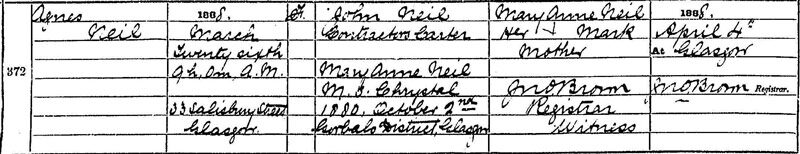 Agnes
Neil
372
1888.
March
Twenty sixth
9h. 0m. A.M.
33 Salisbury Street
Glasgow.
F.
John Neil
Contractors Carter
Mary Anne Neil
M. S. Chrystal
1880, October 2nd
Gorbals District, Glasgow
Mary Anne Neil
Her Mark
Mother
Jno Brown
Registrar
Witness
1888.
April 4th
At Glasgow
Jno Brown Registrar.